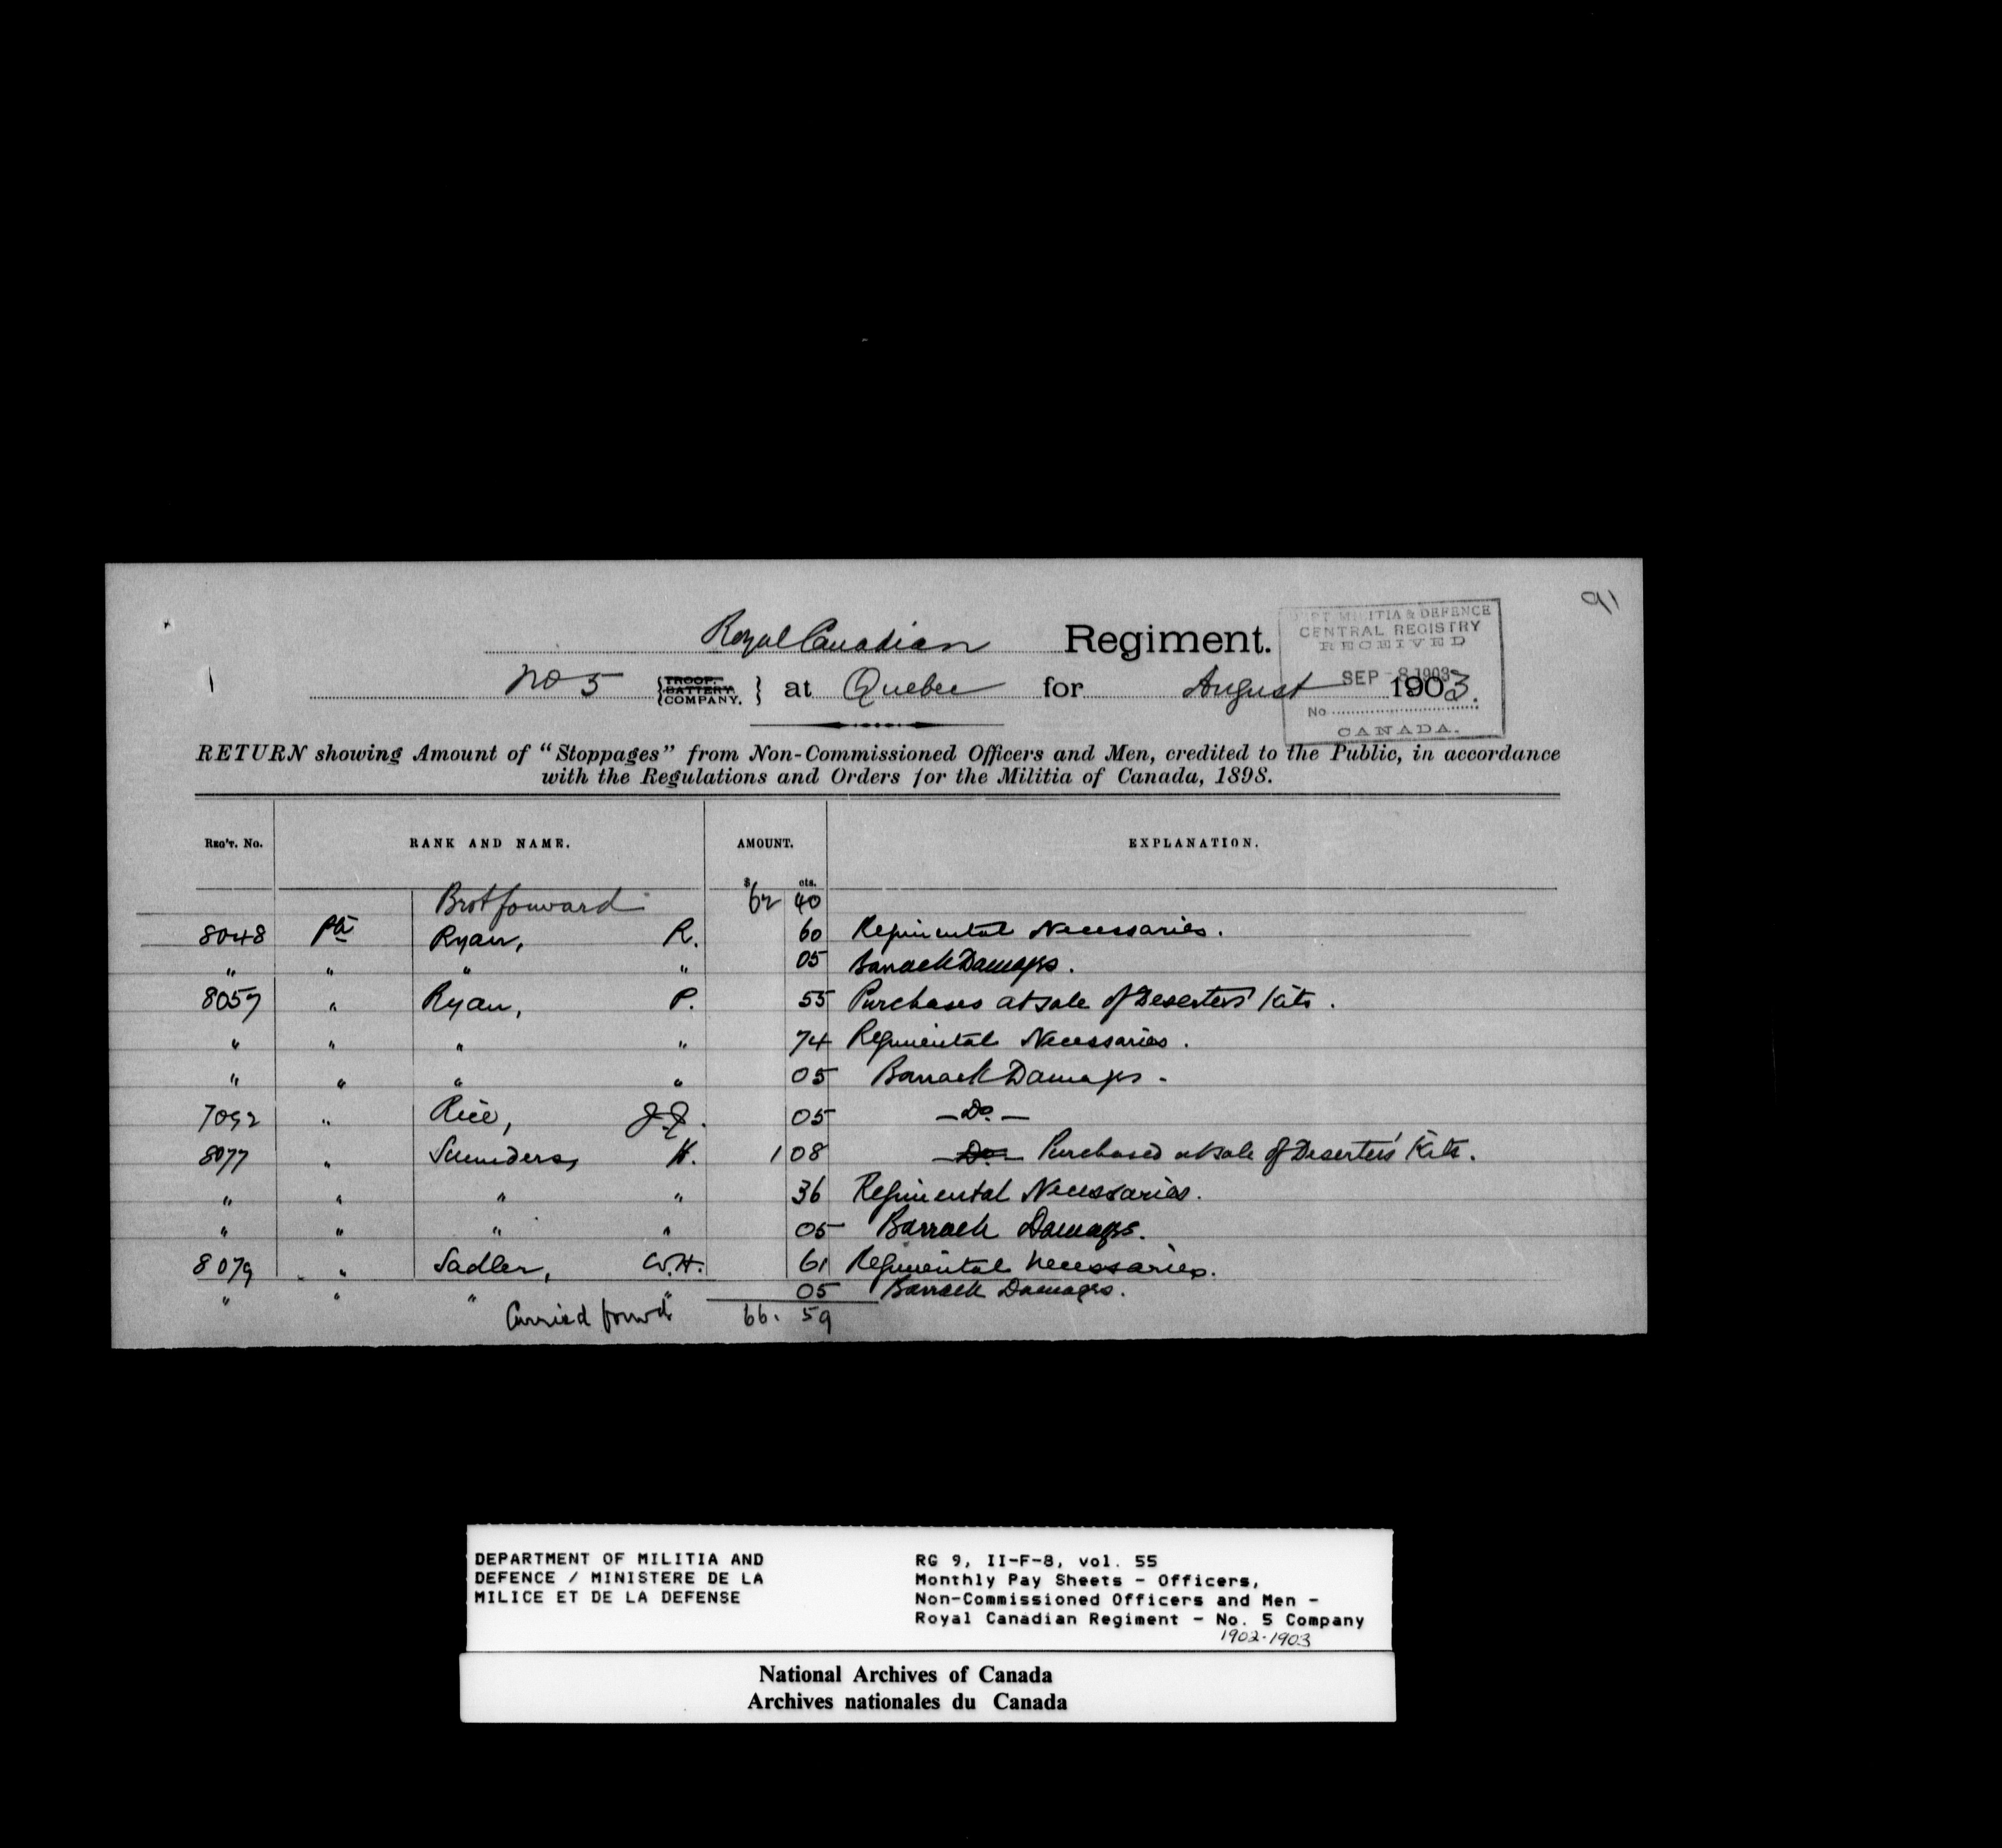 91
Royal Canadian Regiment.
DEPT MILITIA & DEFENCE
CENTRAL REGISTRY
RECEIVED
SEP - 8 1903
No
CANADA.
1 No 5 {TROOP. BATTERY. COMPANY.} at Quebec for August 1903.
RETURN showing Amount of "Stoppages" from Non-Commissioned Officers and Men, credited to the Public, in accordance
with the Regulations and Orders for the Militia of Canada, 1898.
REG'T. NO. RANK AND NAME. AMOUNT. EXPLANATION.
$ cts.
Brot forward 62 40
8048 Pte Ryan, R. 60 Regimental Necessaries.
" " " " 05 Barrack Damages.
8057 " Ryan, P. 55 Purchases at sale of Deserters' Kits.
" " " " 74 Regimental Necessaries.
" " " " 05 Barrack Damages.
7092 " Rice, J.J. 05 -Do-
8077 " Saunders, H. 1 08 -Do- Purchased at sale of Deserters' Kits.
" " " " 36 Regimental Necessaries.
" " " " 05 Barrack Damages.
8079 " Sadler, W.H. 61 Regimental Necessaries.
" " " " 05 Barrack Damages.
Carried forwd 66. 59
DEPARTMENT OF MILITIA AND
DEFENCE / MINISTERE DE LA
MILICE ET DE LA DEFENSE
RG 9, II-F-8, vol. 55
Monthly Pay Sheets - Officers,
Non-Commissioned Officers and Men -
Royal Canadian Regiment - No. 5 Company
1902-1903
National Archives of Canada
Archives nationales du Canada